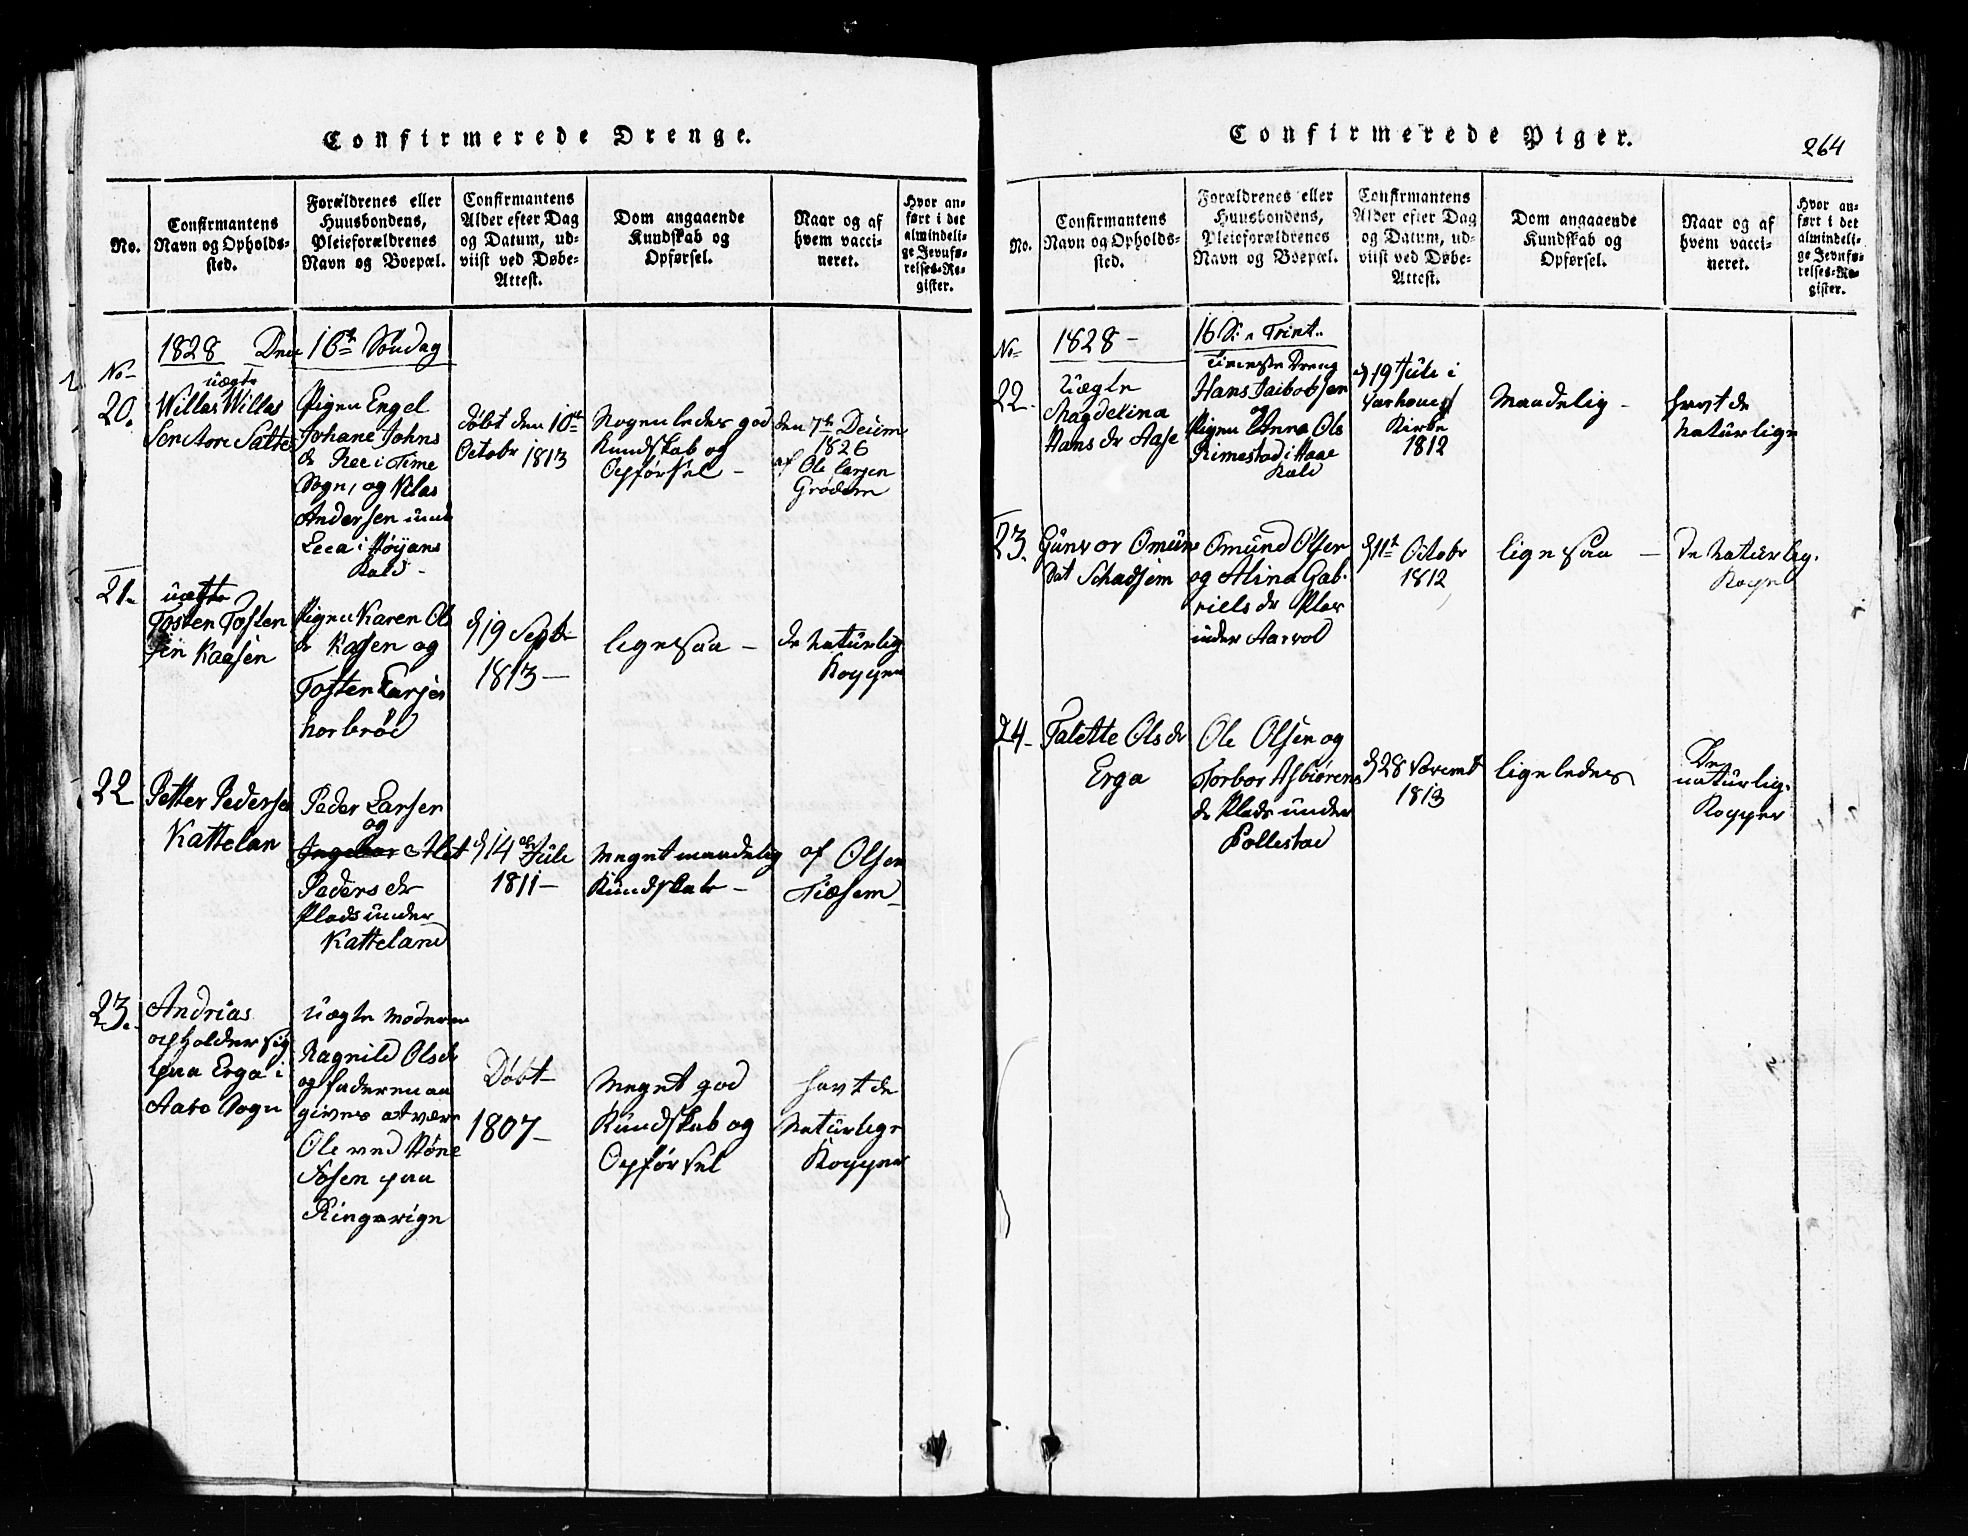 Confirmerede Drenge.
No.
Confirmantens
Navn og Opholds-
sted.
Forældrenes eller
Huusbondens,
Pleieforældrenes
Navn og Boepæl.
Confirmantens
Alder efter Dag
og Datum, ud-
viist ved Døbe-
Attest.
Dom angaaende
Kundskab og
Opførsel.
Naar og af
hvem vacci-
neret.
Hvor an-
ført i det
almindeli-
ge Jevnfø-
relses-Re-
gister.
No
1828 Den 16de Søndag
20.
uægte
Willas Willas
Sen Salte
Pigen Engel
Johane Johns
dr Ree i Time
Sogn, og
Andersen
i Høylans
Kald -
døbt den 10de
Octobr 1813
Nogenledes god
Kundskab og
Opførsel -
den 7de Decem
1826
af Ole Larsen
Grødem
21.
uægte
Tosten Tosten
sen Kaasen
Pigen Karen Ols
dr Kasen og
Tosten Larsen
horbrød
d 19 Septr
1813 -
ligesaa -
de naturlig
Kopper
22
Petter Pedersen
Kattelan
Peder Larsen
og
Ingebor Alet
Peders dr
Plads under
Katteland
d 14de Juli
1811 -
Meget maadelig
Kundskab -
af Olsen
Tiæsem
23.
Andrias
opholder sig
paa Erga i
Sogn
Uægte moderen
Ragnild Olsdr
og faderen an
gives at være
Ole ved
Fosen paa
Ringerige
Døbt
1807 -
Meget god
Kundskab og
Opførsel
havt de
naturlige
Kopper
Confirmerede Piger.
264
No.
Confirmantens
Navn og Opholds-
sted.
Forældrenes eller
Huusbondens,
Pleieforældrenes
Navn og Boepæl.
Confirmantens
Alder efter Dag
og Datum, ud-
viist ved Døbe-
Attest.
Dom angaaende
Kundskab og
Opførsel.
Naar og af
hvem vacci-
neret.
Hvor an-
ført i det
almindeli-
ge Jevnfø-
relses-Re-
gister.
No
1828 -
16 S: n Trint..
22.
Uægte
Magdelina
Hans dr Aase
Tieneste Dreng
Hans Jaibobsen
og
Pigen Anna Ols
Rimestad i Haae
Kald
d 19 Juli i
Varhoug
Kirke
1812
Maadelig -
havt de
naturlige
23.
Gunvor Omuns
dat Schadsem
Omund Olsen
og Alina Gab-
riels dr Plas
under Aarvol
d 11te Octobr
1812
ligesaa -
De naturlig.
24 -
Talette Ols dr
Erga
Ole Olsen og
Torbor Asbiørens
dr Plads under
Pollestad
d 28 Novemb
1813
ligeledes
De
naturlig.
Kopper